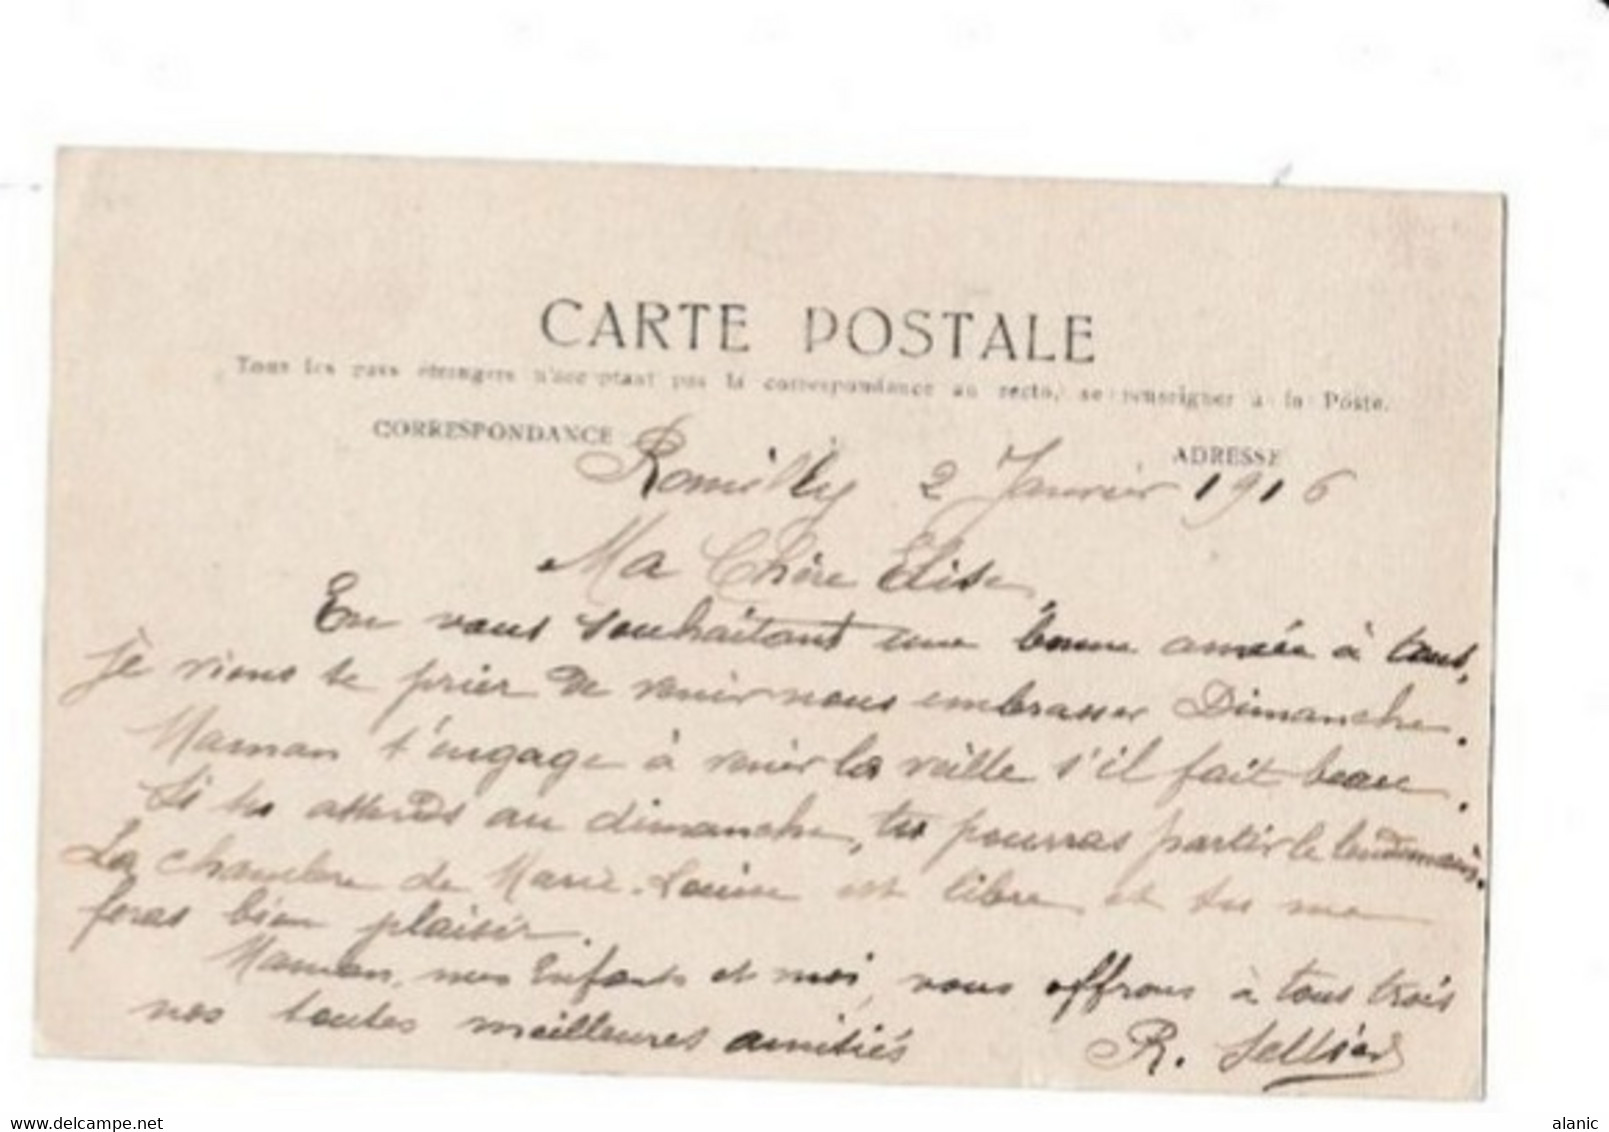 CARTE POSTALE
Tous les pays étrangers n'acceptant pas la correspondance au recto, se renseigner à la Poste.
CORRESPONDANCE
ADRESSE
Romilly 2 Janvier 1916
Ma Chère Elise,
En vous souhaitant une bonne année à tous,
je viens te prier de venir nous embrasser Dimanche.
Maman t'engage à venir la veille s'il fait beau.
Si tu attends au dimanche, tu pourras partir le lendemain.
La chambre de Marie-Louise est libre et tu me
feras bien plaisir.
Maman, mes Enfants et moi, vous offrons à tous trois
nos toutes meilleures amitiés
R.
delcampe.net
alanic